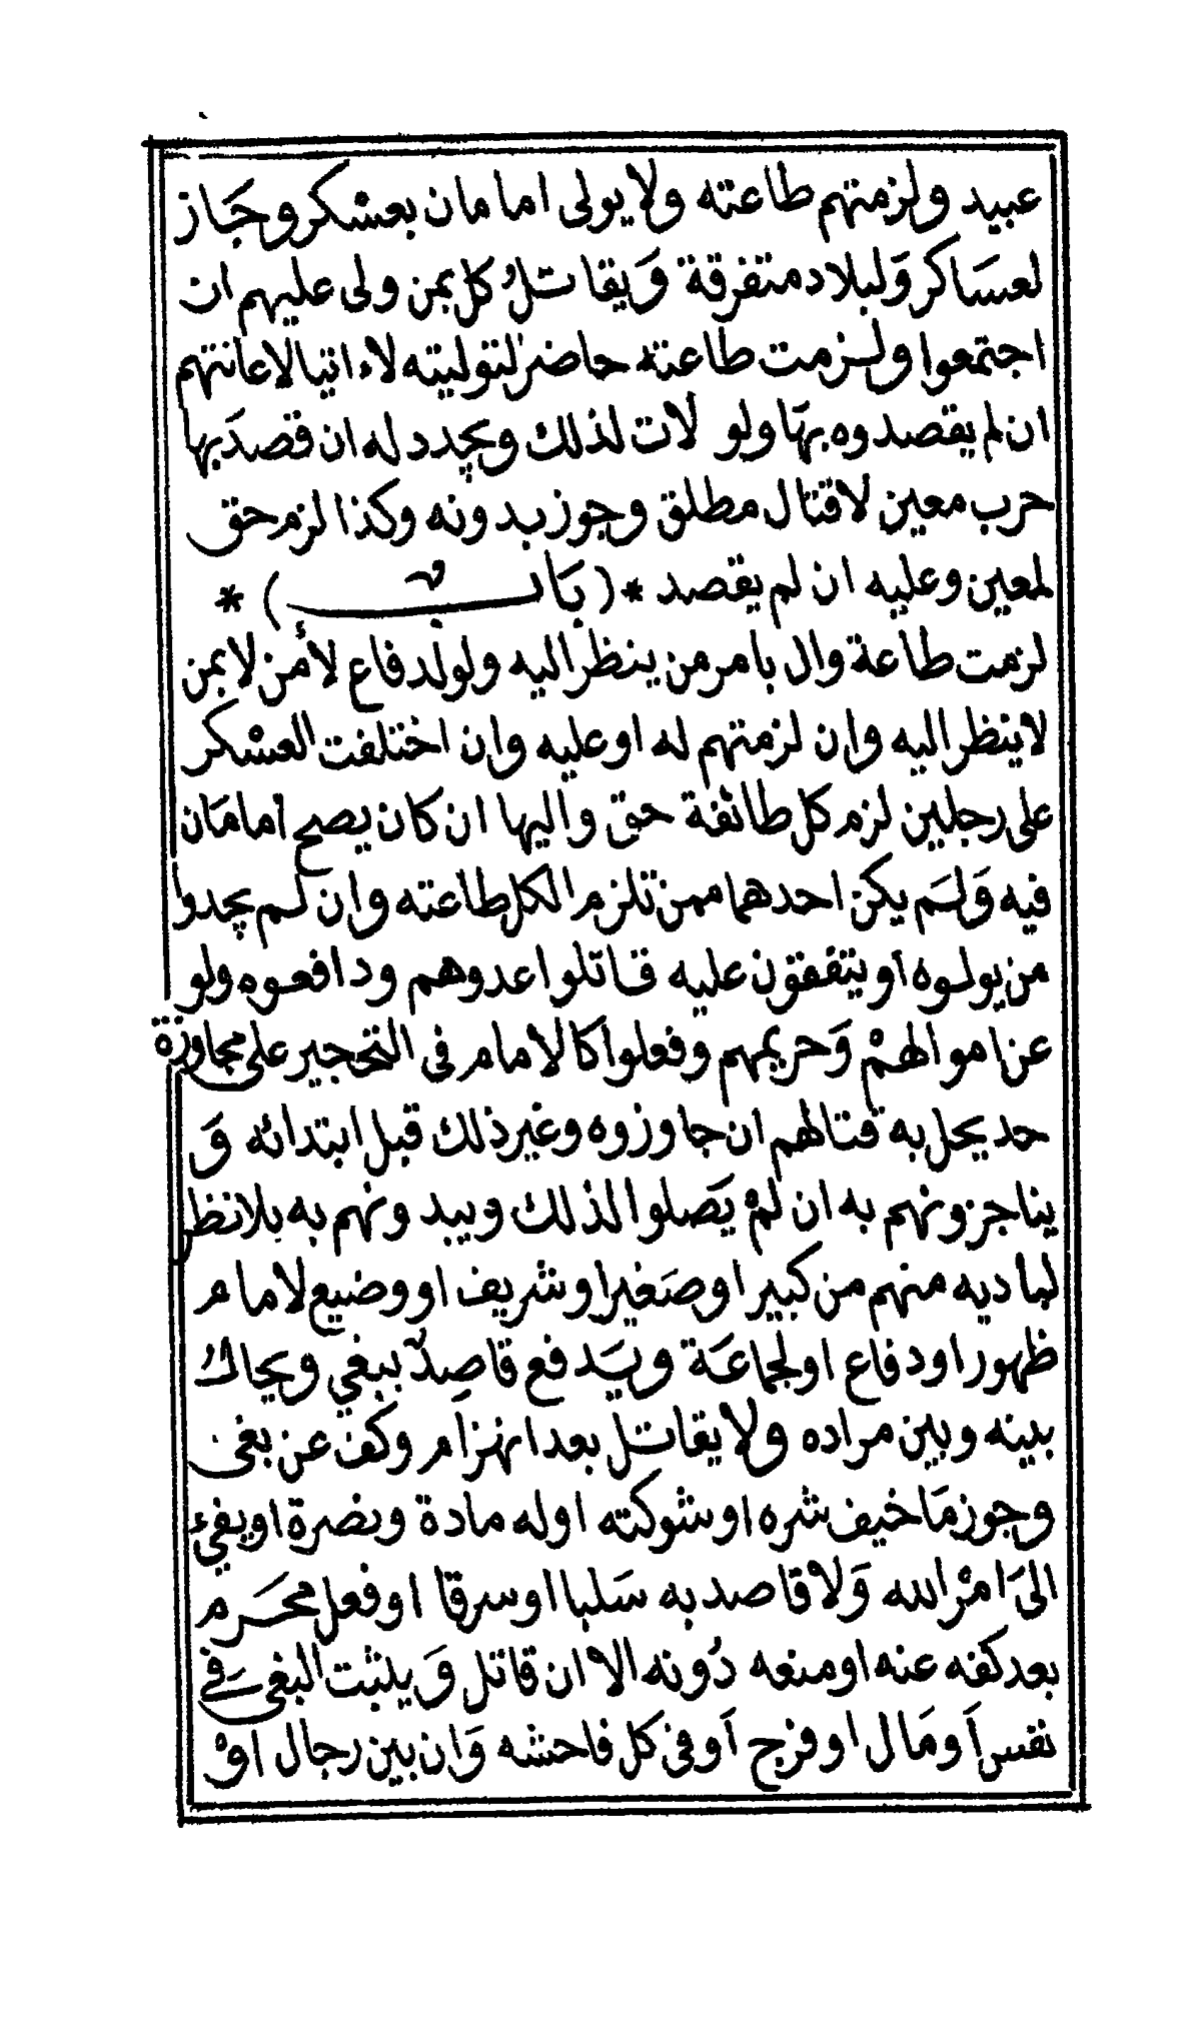 عبيد ولزمتهم طاعته ولا يولى امامان بعسكر وجَاز
لعسَاكر وَلبلاد متفرقة وَيقاتلُ كل بمن ولى عليهم ان
اجتمعوا ولزمت طاعته حاضرُ لتوليته لاء اتيا لاعانتهم
ان لم يقصدوه بهَا ولو لات لذلك ويجدد له ان قصدَ بها
حرب معين لا قتال مطلق وجوز بدونه وكذا لزم حق
لمعين وعليه ان لم يقصد *(بَاب)*
لزمت طاعة وال بامر من ينظر اليه ولو لدفاع لأمن لا بمن
لا ينظر اليه وان لزمتهم له او عليه وان اختلفت العسكر
على رجلين لزم كل طائفة حق واليها ان كان يصح امامَان
فيه وَلَم يكن احدهما ممن تلزم الكل طاعته وان لم يجدوا
من يولوه أو يتفقون عليه قاتلوا عدوهم ودافعوه ولو
عن اموالهمْ وَحريمهم وفعلوا كالامام فى التحجير على مجاوزة
حد يحل به قتالهم ان جاوزوه وغير ذلك قبل ابتدائه وَ
يناجزونهم به ان لمْ يَصلوا لذلك ويبدونهم به بلا نظر
لباديه منهم من كبير او صَغير او شريف او وضيع لامام
ظهور او دفاع او لجماعَة ويَدفع قاصدٌ ببغي ويحاكُ
بينه وبين مراده ولا يقاتل بعد انهزام وكف عن بغى
وجوز مَا خيف شره او شوكته او له مادة ونصرة او يفيء
الىَ امْر الله وَلا قاصد به سَلبا او سرقا او فعل محَرم
بعد كفه عنه او منعه دُونه الا ان قاتل وَيثبت البغى في
نفس اَو مَال او فرج اَو فى كل فاحشه وَان بين رجال اوْ